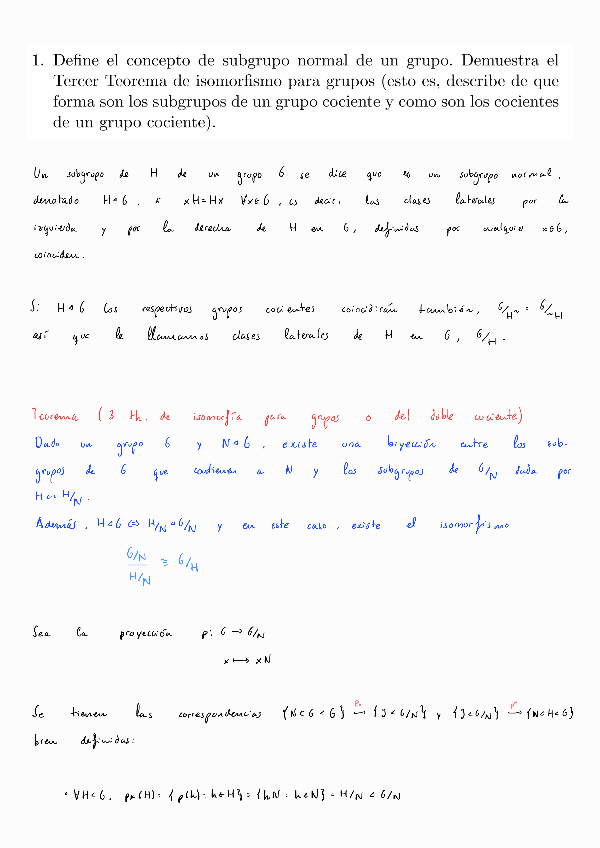 1. Define el concepto de subgrupo normal de un grupo. Demuestra el
Tercer Teorema de isomorfismo para grupos (esto es, describe de que
forma son los subgrupos de un grupo cociente y como son los cocientes
de un grupo cociente).
Un subgrupo de H de un grupo G se dice que es un subgrupo normal,
denotado H◁G, si xH=Hx ∀x∈G, es decir, las clases laterales por la
izquierda y por la derecha de H en G, definidas por cualquier x∈G,
coinciden.
Si H◁G los respectivos grupos cocientes coincidirán también, G/H~ = G/~H
así que le llamamos clases laterales de H en G, G/H.
Teorema (3 th. de isomorfía para grupos o del doble cociente)
Dado un grupo G y N◁G, existe una biyección entre los sub-
grupos de G que contienen a N y los subgrupos de G/N dada por
H↔H/N.
Además, H◁G ⇔ H/N◁G/N y en este caso, existe el isomorfismo
G/N
H/N ≅ G/H
Sea la proyección p: G → G/N
x ↦ xN
Se tienen las correspondencias {N<G<G} →p* {J<G/N} y {J<G/N} →p* {N<H<G}
bien definidas:
• ∀H<G, p*(H) = {p(h) : h∈H} = {hN : h∈N} = H/N < G/N